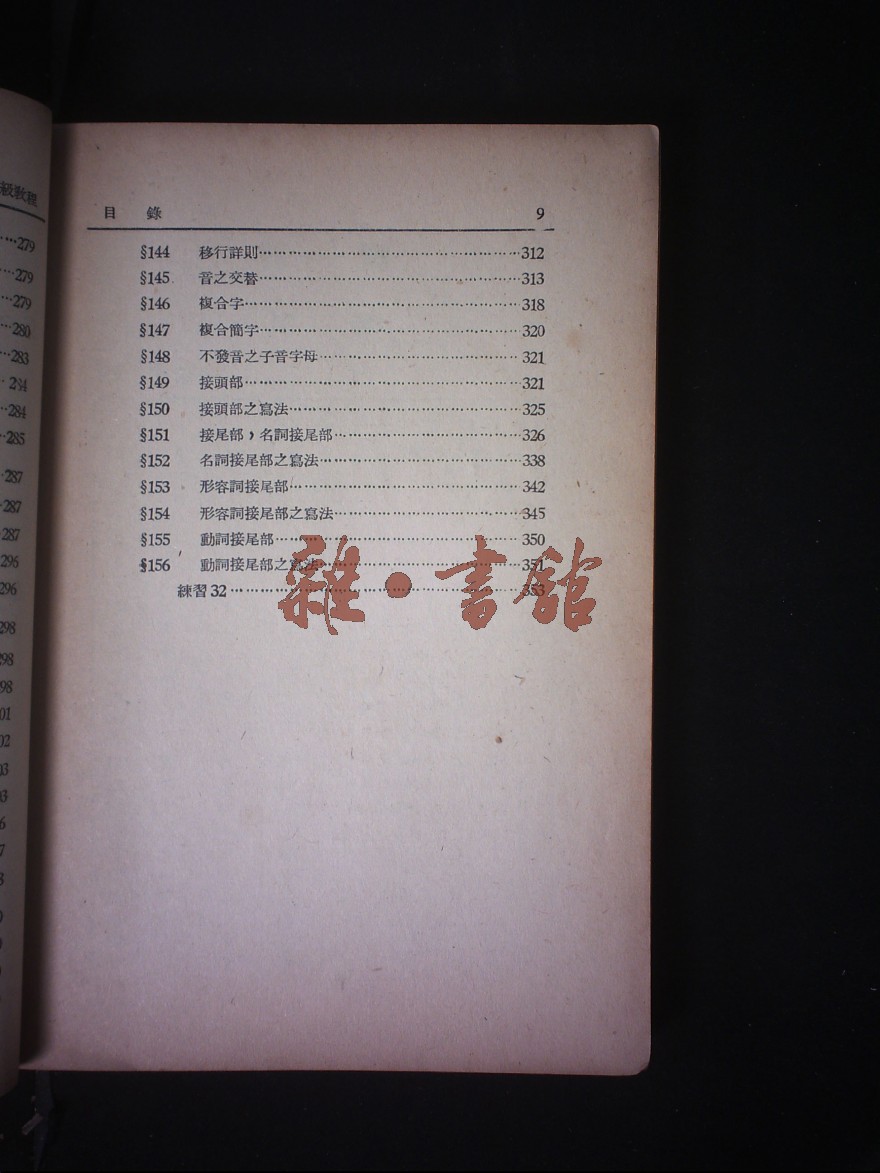 級教程
279
279
279
280
283
284
284
285
287
287
287
296
296
298
298
298
目 錄 9
§144 移行詳則 312
§145 音之交替 313
§146 複合字 318
§147 複合簡字 320
§148 不發音之子音字母 321
§149 接頭部 321
§150 接頭部之寫法 325
§151 接尾部，名詞接尾部 326
§152 名詞接尾部之寫法 338
§153 形容詞接尾部 342
§154 形容詞接尾部之寫法 345
§155 動詞接尾部 350
§156 動詞接尾部之寫法 351
練習 32 353
雜・書館